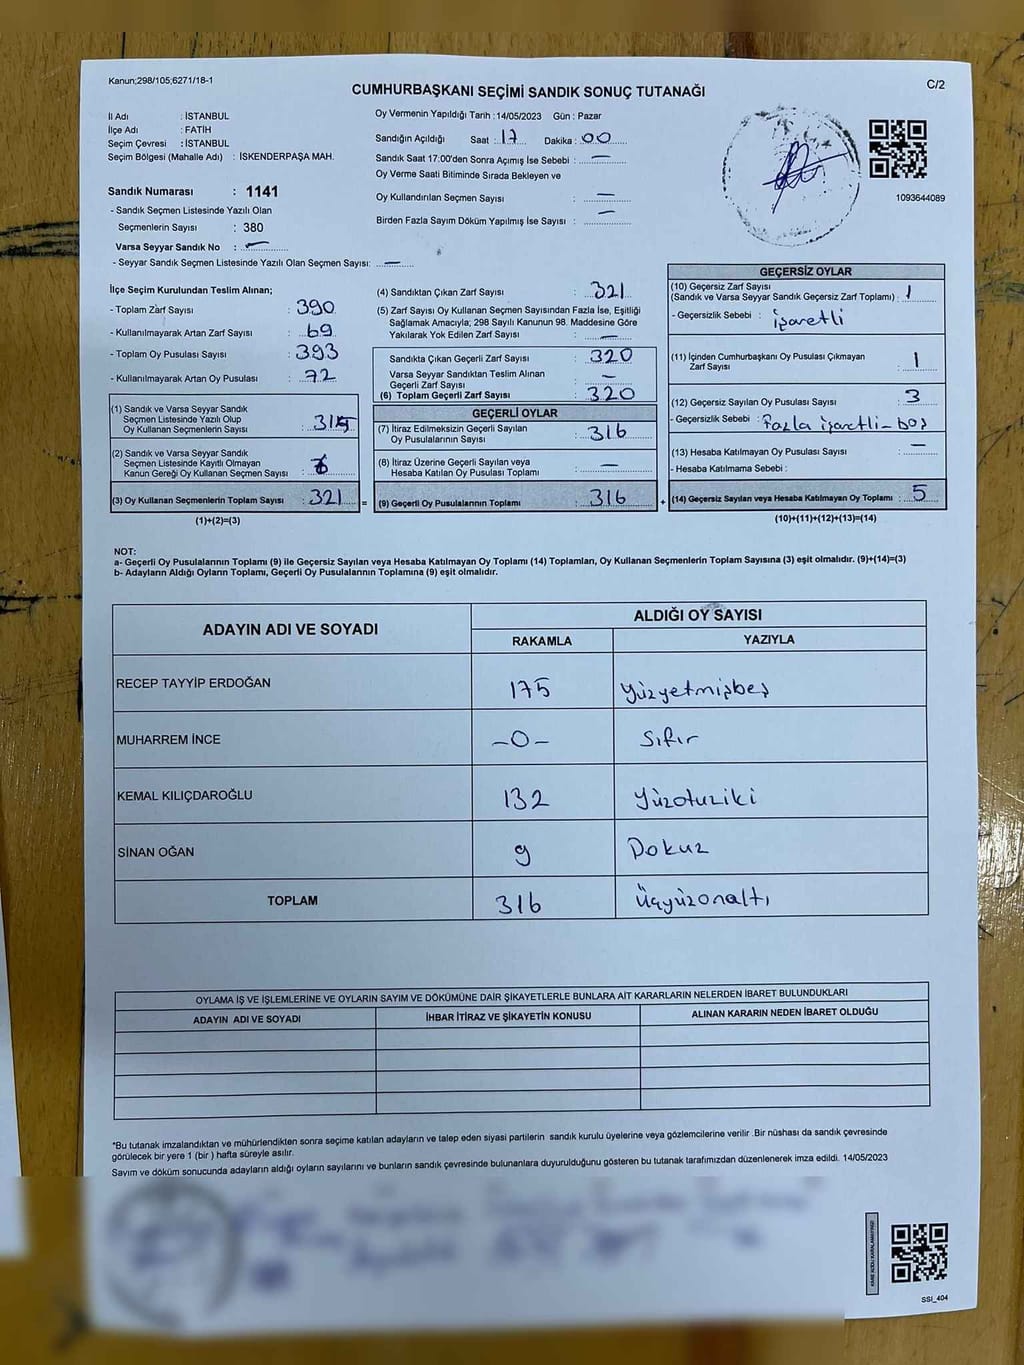 Kanun;298/105;6271/18-1
C/2
CUMHURBAŞKANI SEÇİMİ SANDIK SONUÇ TUTANAĞI
İl Adı : İSTANBUL
İlçe Adı : FATİH
Seçim Çevresi : İSTANBUL
Seçim Bölgesi (Mahalle Adı) : İSKENDERPAŞA MAH.
Sandık Numarası : 1141
- Sandık Seçmen Listesinde Yazılı Olan
Seçmenlerin Sayısı : 380
Varsa Seyyar Sandık No : —
- Seyyar Sandık Seçmen Listesinde Yazılı Olan Seçmen Sayısı: —
Oy Vermenin Yapıldığı Tarih : 14/05/2023 Gün : Pazar
Sandığın Açıldığı Saat : 17 Dakika : 00
Sandık Saat 17:00'den Sonra Açımış İse Sebebi : —
Oy Verme Saati Bitiminde Sırada Bekleyen ve
Oy Kullandırılan Seçmen Sayısı : —
Birden Fazla Sayım Döküm Yapılmış İse Sayısı : —
1093644089
İlçe Seçim Kurulundan Teslim Alınan;
- Toplam Zarf Sayısı : 390
- Kullanılmayarak Artan Zarf Sayısı : 69
- Toplam Oy Pusulası Sayısı : 393
- Kullanılmayarak Artan Oy Pusulası : 72
(1) Sandık ve Varsa Seyyar Sandık
Seçmen Listesinde Yazılı Olup
Oy Kullanan Seçmenlerin Sayısı : 315
(2) Sandık ve Varsa Seyyar Sandık
Seçmen Listesinde Kayıtlı Olmayan
Kanun Gereği Oy Kullanan Seçmen Sayısı : 6
(3) Oy Kullanan Seçmenlerin Toplam Sayısı : 321 =
(1)+(2)=(3)
(4) Sandıktan Çıkan Zarf Sayısı : 321
(5) Zarf Sayısı Oy Kullanan Seçmen Sayısından Fazla İse, Eşitliği
Sağlamak Amacıyla; 298 Sayılı Kanunun 98. Maddesine Göre
Yakılarak Yok Edilen Zarf Sayısı : —
Sandıkta Çıkan Geçerli Zarf Sayısı : 320
Varsa Seyyar Sandıktan Teslim Alınan
Geçerli Zarf Sayısı : —
(6) Toplam Geçerli Zarf Sayısı : 320
GEÇERLİ OYLAR
(7) İtiraz Edilmeksizin Geçerli Sayılan
Oy Pusulalarının Sayısı : 316
(8) İtiraz Üzerine Geçerli Sayılan veya
Hesaba Katılan Oy Pusulası Toplamı : —
(9) Geçerli Oy Pusulalarının Toplamı : 316 +
GEÇERSİZ OYLAR
(10) Geçersiz Zarf Sayısı
(Sandık ve Varsa Seyyar Sandık Geçersiz Zarf Toplamı) : 1
- Geçersizlik Sebebi : işaretli
(11) İçinden Cumhurbaşkanı Oy Pusulası Çıkmayan
Zarf Sayısı : 1
(12) Geçersiz Sayılan Oy Pusulası Sayısı : 3
- Geçersizlik Sebebi : Fazla işaretli-boş
(13) Hesaba Katılmayan Oy Pusulası Sayısı : —
- Hesaba Katılmama Sebebi :
(14) Geçersiz Sayılan veya Hesaba Katılmayan Oy Toplamı : 5
(10)+(11)+(12)+(13)=(14)
NOT:
a- Geçerli Oy Pusulalarının Toplamı (9) ile Geçersiz Sayılan veya Hesaba Katılmayan Oy Toplamı (14) Toplamları, Oy Kullanan Seçmenlerin Toplam Sayısına (3) eşit olmalıdır. (9)+(14)=(3)
b- Adayların Aldığı Oyların Toplamı, Geçerli Oy Pusulalarının Toplamına (9) eşit olmalıdır.
ADAYIN ADI VE SOYADI ALDIĞI OY SAYISI
RAKAMLA YAZIYLA
RECEP TAYYİP ERDOĞAN 175 Yüzyetmişbeş
MUHARREM İNCE -0- Sıfır
KEMAL KILIÇDAROĞLU 132 Yüzotuziki
SİNAN OĞAN 9 Dokuz
TOPLAM 316 Üçyüzonaltı
OYLAMA İŞ VE İŞLEMLERİNE VE OYLARIN SAYIM VE DÖKÜMÜNE DAİR ŞİKAYETLERLE BUNLARA AİT KARARLARIN NELERDEN İBARET BULUNDUKLARI
ADAYIN ADI VE SOYADI İHBAR İTİRAZ VE ŞİKAYETİN KONUSU ALINAN KARARIN NEDEN İBARET OLDUĞU
*Bu tutanak imzalandıktan ve mühürlendikten sonra seçime katılan adayların ve talep eden siyasi partilerin sandık kurulu üyelerine veya gözlemcilerine verilir .Bir nüshası da sandık çevresinde
görülecek bir yere 1 (bir ) hafta süreyle asılır.
Sayım ve döküm sonucunda adayların aldığı oyların sayılarını ve bunların sandık çevresinde bulunanlara duyurulduğunu gösteren bu tutanak tarafımızdan düzenlenerek imza edildi. 14/05/2023
KARE KODU KARALAMAYINIZ!
SSI_404